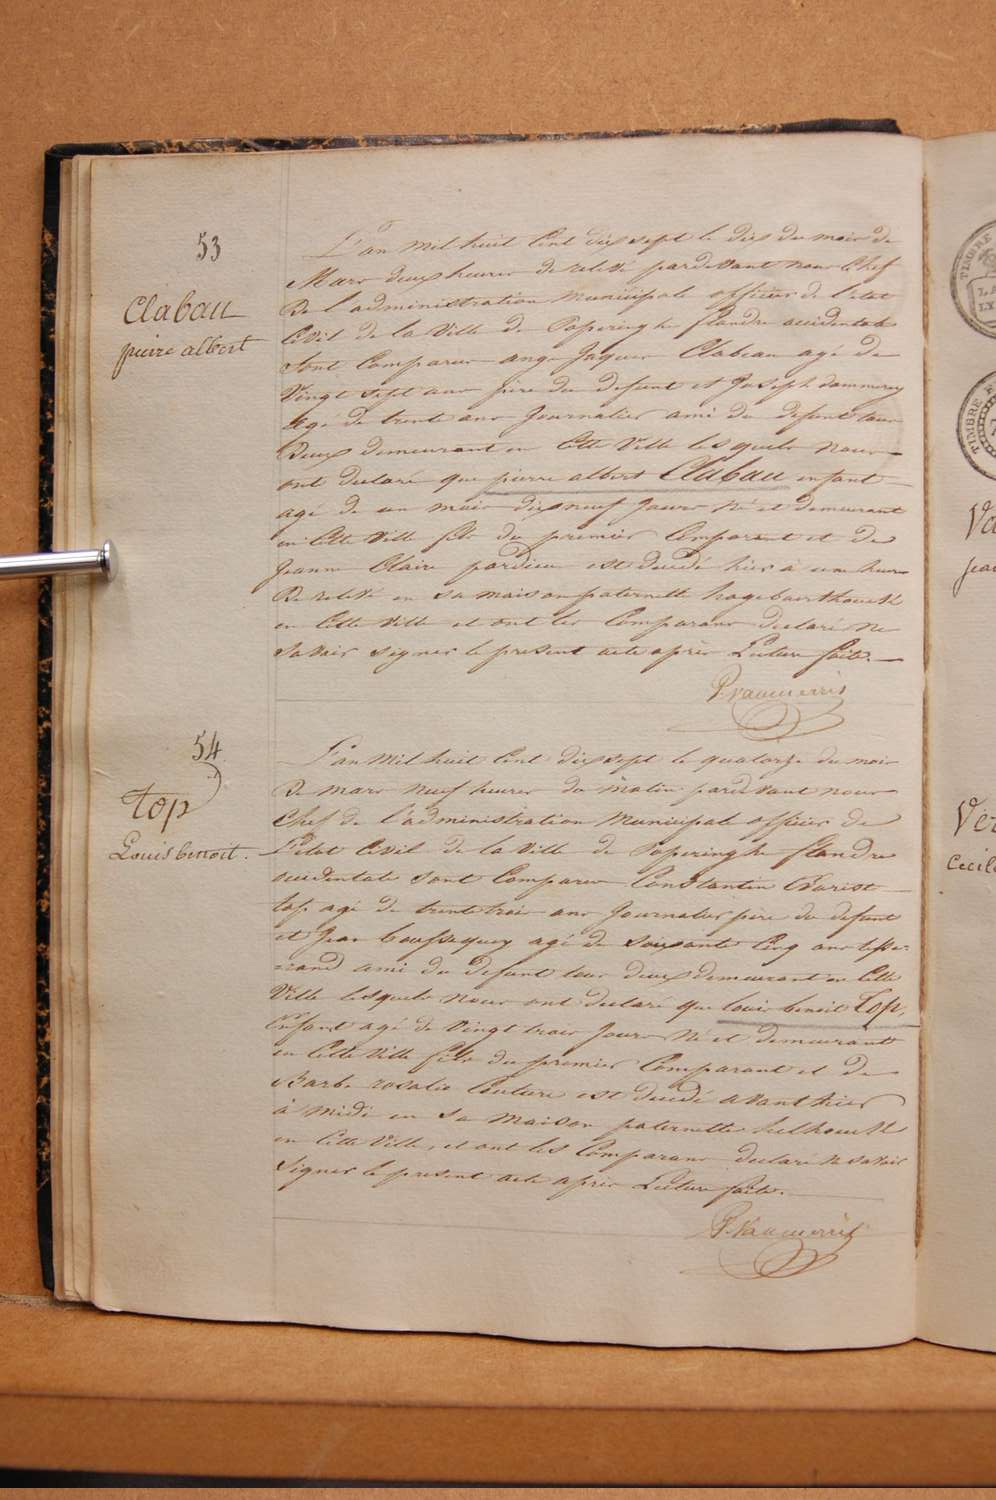 53
Clabau
pierre albert
L'an mil huit Cent dix sept le dix du mois de
Mars deux heures de relevé pardevant nous Chef
De l'administration Municipale officier de l'etat
Civil de la Ville de Poperinghe flandre occidentale
sont Comparus ange Jaques Clabeau agé de
Vingt sept ans père du defunt et Joseph dammerey
agé de trente ans Journalier ami du defunt tous
Deux demeurant en Cette Ville lesquels nous
ont declaré que pierre albert Clabau enfant
agé de un mois dix neuf Jours Né et demeurant
en Cette Ville fils du premier Comparant et de
Jeanne Claire pardieu est decedé hier à une heure
De relevé en sa maison paternelle
en Cette Ville et ont les Comparans declaré ne
Savoir signer le present acte après Lecture faite.
P. Vanmerris
54
top
Louis benoit.
L'an Mil huit Cent dix sept le quatorze du mois
De mars Neuf heures du matin pardevant nous
Chef de l'administration Municipale officier de
L'etat Civil de la Ville de Poperinghe flandre
occidentale sont Comparus Constantin Evarist
top agé de trente trois ans Journalier père du defunt
et Jean agé de Soixante Cinq ans tisse-
-rand ami du Defunt tous deux demeurant en Cette
Ville lesquels nous ont declaré que louis benoit Top,
Enfant agé de Vingt trois Jours Né et demeurant
en Cette Ville fils du premier Comparant et de
Barbe rosalie Couture est decedé avant hier
à midi en Sa maison paternelle
en Cette Ville, et ont les Comparans declaré ne savoir
Signer le present acte après Lecture faite.
P. Vanmerris
TIMBRE
TIMBRE
Va
jea
Ver
cecile